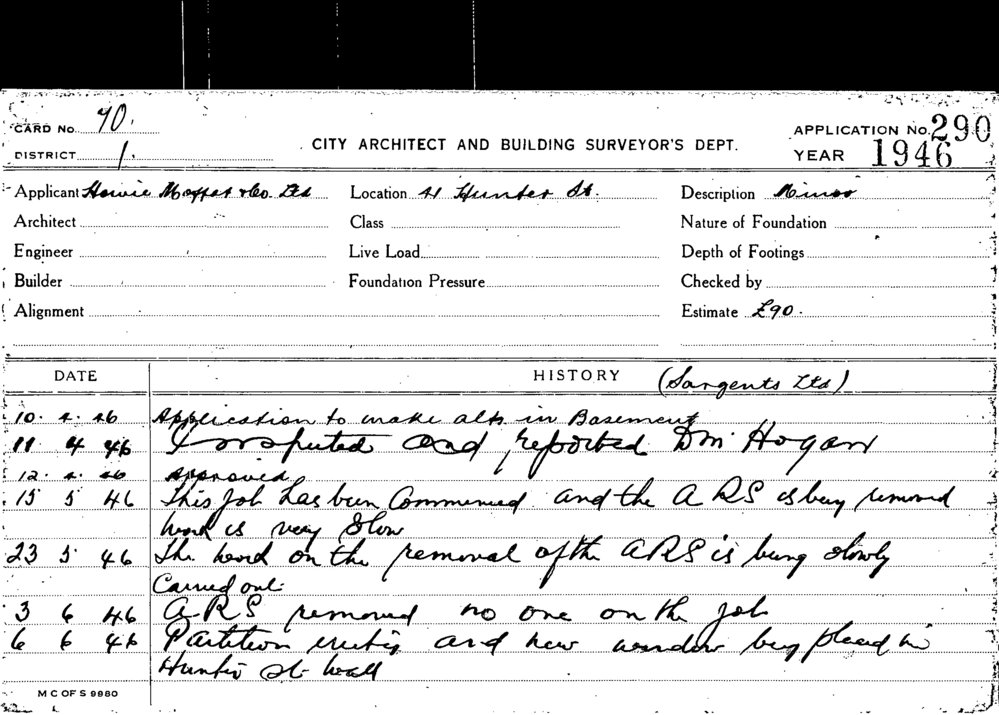 CARD No. 70.
APPLICATION No. 290
DISTRICT 1.
CITY ARCHITECT AND BUILDING SURVEYOR'S DEPT.
YEAR 1946
Applicant Howie Moffat & Co. Ltd Location 41 Hunter St. Description Minor
Architect Class Nature of Foundation
Engineer Live Load Depth of Footings
Builder Foundation Pressure Checked by
Alignment Estimate £90.
DATE HISTORY (Sargents Ltd)
10. 4. 46 Application to make alts. in Basement
11 4 46 Inspected and reported D Mc Hogan
12. 4. 46 Approved
15 5 46 This job has been Commenced and the A R S is being removed
work is very Slow
23 5 46 The work on the removal of the A R S is being slowly
Carried out.
3 6 46 A R S removed no one on the job
6 6 46 Partition and new window being placed in
Hunter St wall
M C OF S 9980